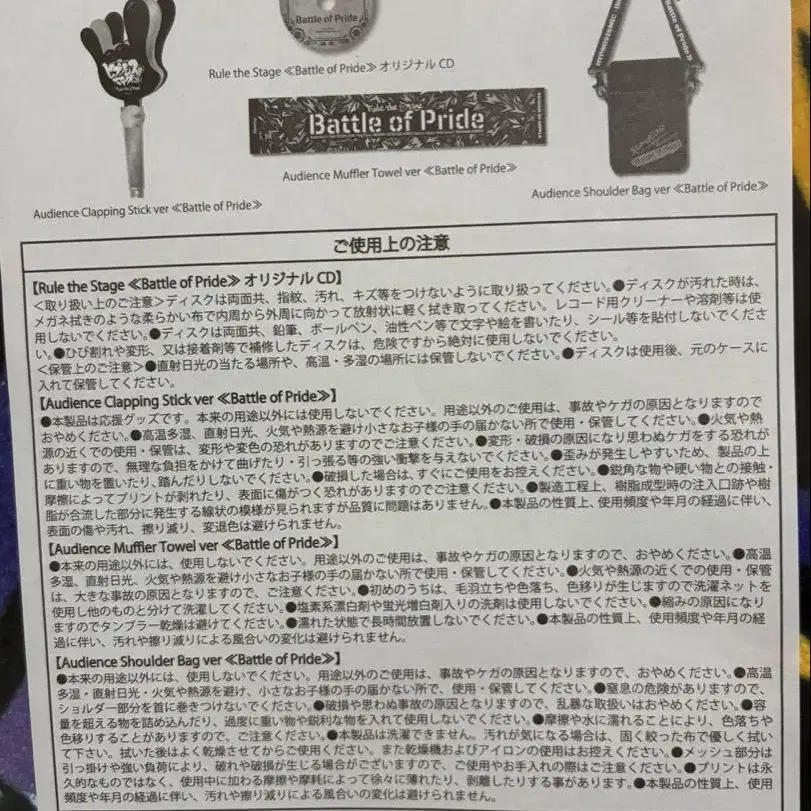 Battle of Pride
Rule the Stage ≪Battle of Pride≫ オリジナル CD
Rule the Stage
Battle of Pride
Audience Muffler Towel ver ≪Battle of Pride≫
HYPNOSISMIC
Battle of Pride≫
Audience Shoulder Bag ver ≪Battle of Pride≫
Audience Clapping Stick ver ≪Battle of Pride≫
ご使用上の注意
【Rule the Stage ≪Battle of Pride≫ オリジナル CD】
＜取り扱い上のご注意＞ディスクは両面共、指紋、汚れ、キズ等をつけないように取り扱ってください。●ディスクが汚れた時は、
メガネ拭きのような柔らかい布で内周から外周に向かって放射状に軽く拭き取ってください。レコード用クリーナーや溶剤等は使
用しないでください。●ディスクは両面共、鉛筆、ボールペン、油性ペン等で文字や絵を書いたり、シール等を貼付しないでくださ
い。●ひび割れや変形、又は接着剤等で補修したディスクは、危険ですから絶対に使用しないでください。
＜保管上のご注意＞●直射日光の当たる場所や、高温・多湿の場所には保管しないでください。●ディスクは使用後、元のケースに
入れて保管してください。
【Audience Clapping Stick ver ≪Battle of Pride≫】
●本製品は応援グッズです。本来の用途以外には使用しないでください。用途以外のご使用は、事故やケガの原因となりますので
おやめください。●高温多湿、直射日光、火気や熱源を避け小さなお子様の手の届かない所で使用・保管してください。●火気や熱
源の近くでの使用・保管は、変形や変色の恐れがありますのでご注意ください。●変形・破損の原因になり思わぬケガをする恐れが
ありますので、無理な負担をかけて曲げたり・引っ張る等の強い衝撃を与えないでください。●歪みが発生しやすいため、製品の上
に重い物を置いたり、踏んだりしないでください。●破損した場合は、すぐにご使用をお控えください。●鋭角な物や硬い物との接触・
摩擦によってプリントが剥れたり、表面に傷がつく恐れがありますのでご注意ください。●製造工程上、樹脂成型時の注入口跡や樹
脂が合流した部分に発生する線状の模様が見られますが品質に問題はありません。●本製品の性質上、使用頻度や年月の経過に伴い、
表面の傷や汚れ、擦り減り、変退色は避けられません。
【Audience Muffler Towel ver ≪Battle of Pride≫】
●本来の用途以外には、使用しないでください。用途以外のご使用は、事故やケガの原因となりますので、おやめください。●高温
多湿、直射日光、火気や熱源を避け小さなお子様の手の届かない所で使用・保管してください。●火気や熱源の近くでの使用・保管
は、大きな事故の原因となりますので、ご注意ください。●初めのうちは、毛羽立ちや色落ち、色移りが生じますので洗濯ネットを
使用し他のものと分けて洗濯してください。●塩素系漂白剤や蛍光増白剤入りの洗剤は使用しないでください。●縮みの原因になり
ますのでタンブラー乾燥は避けてください。●濡れた状態で長時間放置しないでください。●本製品の性質上、使用頻度や年月の経
過に伴い、汚れや擦り減りによる風合いの変化は避けられません。
【Audience Shoulder Bag ver ≪Battle of Pride≫】
●本来の用途以外には、使用しないでください。用途以外のご使用は、事故やケガの原因となりますので、おやめください。●高温
多湿・直射日光・火気や熱源を避け、小さなお子様の手の届かない所で、使用・保管してください。●窒息の危険がありますので、
ショルダー部分を首に巻きつけないでください。●破損や思わぬ事故の原因となりますので、乱暴な取扱いはおやめください。●容
量を超える物を詰め込んだり、過度に重い物や鋭利な物を入れて使用しないでください。●摩擦や水に濡れることにより、色落ちや
色移りすることがありますので、ご注意ください。●本製品は洗濯できません。汚れが気になる場合は、固く絞った布で優しく拭い
て下さい。拭いた後はよく乾燥させてからご使用ください。また乾燥機およびアイロンの使用はお控えください。●メッシュ部分は
引っ掛けや強い負荷により、破れや破損が生じる場合がございますので、ご使用やお手入れの際はご注意ください。●プリントは永
久的なものではなく、使用中に加わる摩擦や摩耗によって徐々に薄れたり、剥離したりする事があります。●本製品の性質上、使用
頻度や年月の経過に伴い、汚れや擦り減りによる風合いの変化は避けられません。